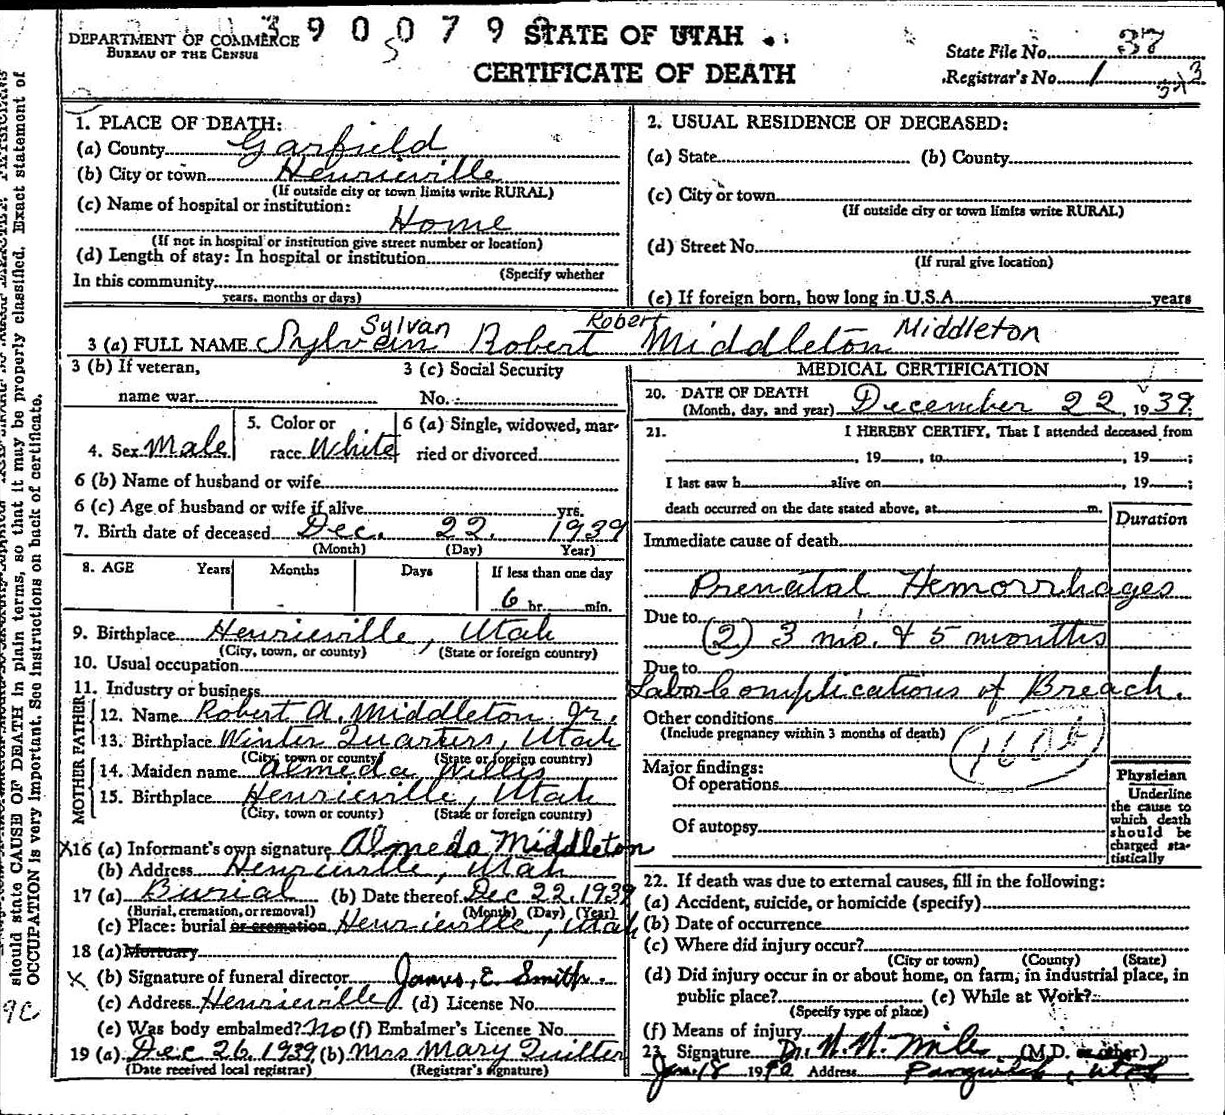 3 9 0 0 7 9
DEPARTMENT OF COMMERCE
BUREAU OF THE CENSUS
STATE OF UTAH
CERTIFICATE OF DEATH
State File No. 37
Registrar's No. 1
should state CAUSE OF DEATH in plain terms, so that it may be properly classified. Exact statement of
OCCUPATION is very important. See instructions on back of certificate.
1. PLACE OF DEATH:
(a) County Garfield
(b) City or town Henrieville
(If outside city or town limits write RURAL)
(c) Name of hospital or institution:
Home
(If not in hospital or institution give street number or location)
(d) Length of stay: In hospital or institution
(Specify whether
In this community
years, months or days)
2. USUAL RESIDENCE OF DECEASED:
(a) State (b) County
(c) City or town
(If outside city or town limits write RURAL)
(d) Street No.
(If rural give location)
(e) If foreign born, how long in U.S.A. years
Sylvan Robert Middleton
3 (a) FULL NAME Sylvain Robert Middleton
3 (b) If veteran,
name war
3 (c) Social Security
No.
4. Sex Male
5. Color or
race White
6 (a) Single, widowed, mar-
ried or divorced
6 (b) Name of husband or wife
6 (c) Age of husband or wife if alive yrs.
7. Birth date of deceased Dec. 22. 1939
(Month) (Day) Year)
8. AGE Years Months Days If less than one day
6 hr. min.
9. Birthplace Henrieville, Utah
(City, town, or county) (State or foreign country)
10. Usual occupation
11. Industry or business
FATHER
12. Name Robert A. Middleton Jr.
13. Birthplace Winter Quarters, Utah
(City, town or county) (State or foreign country)
MOTHER
14. Maiden name Almeda Willis
15. Birthplace Henrieville, Utah
(City, town or county) (State or foreign country)
X16 (a) Informant's own signature Almeda Middleton
(b) Address Henrieville, Utah
17 (a) Burial (b) Date thereof Dec 22, 1939
(Burial, cremation, or removal) (Month) (Day) (Year)
(c) Place: burial or cremation Henrieville, Utah
18 (a) Mortuary
X (b) Signature of funeral director James E Smith
(c) Address Henrieville (d) License No.
(e) Was body embalmed? No (f) Embalmer's License No.
19 (a) Dec 26, 1939 (b) Mrs Mary Quilter
(Date received local registrar) (Registrar's signature)
9C
MEDICAL CERTIFICATION
20. DATE OF DEATH
(Month, day, and year) December 22, 1939
21. I HEREBY CERTIFY, That I attended deceased from
, 19 , to , 19 ;
I last saw h alive on , 19 ;
death occurred on the date stated above, at m.
Duration
Immediate cause of death
Prenatal Hemorrhages
Due to
(2) 3 mo. & 5 months
Due to
Labor Complications of Breach.
Other conditions
(Include pregnancy within 3 months of death)
160b
Major findings:
Of operations
Of autopsy
Physician
Underline
the cause to
which death
should be
charged sta-
tistically
22. If death was due to external causes, fill in the following:
(a) Accident, suicide, or homicide (specify)
(b) Date of occurrence
(c) Where did injury occur?
(City or town) (County) (State)
(d) Did injury occur in or about home, on farm, in industrial place, in
public place? (e) While at Work?
(Specify type of place)
(f) Means of injury
23 Signature Dr. (M.D. or other)
Jan. 18 1940 Address Panguitch, Utah